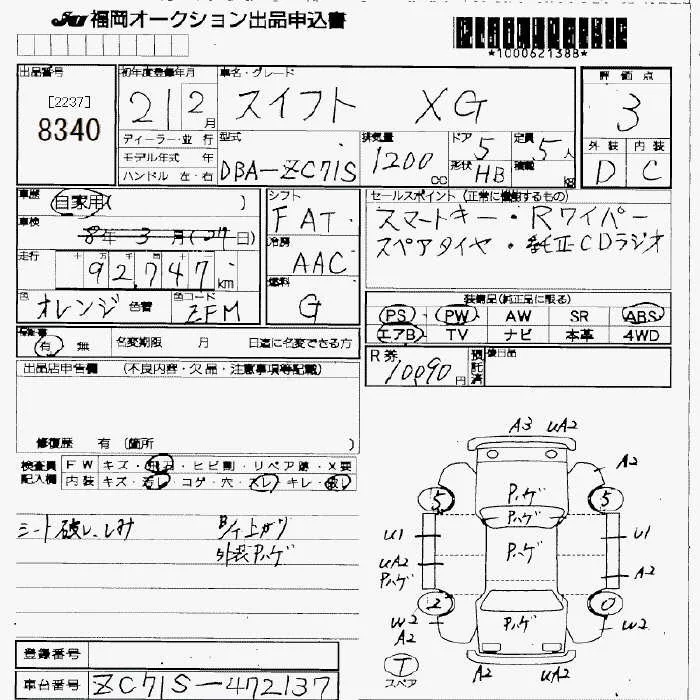 JU 福岡オークション出品申込書
*1000621388*
出品番号
[2237]
8340
初年度登録年月
21 2月
ディーラー・並 行
モデル年式 年
ハンドル 左・右
車名・グレード
スイフト XG
型式
DBA-ZC71S
排気量
1200cc
ドア 5
形状 HB
定員 5人
積載 kg
評価点
3
外装 内装
D C
車歴
自家用( )
車検
8年 3月(27日)
走行
十万 万 千 百 十
92,747km
色
オレンジ 色替
色コード
ZFM
シフト
FAT
冷房
AAC
燃料
G
セールスポイント(正常に機能するもの)
スマートキー・Rワイパー
スペアタイヤ・純正CDラジオ
装備品(純正品に限る)
PS・PW・AW SR ABS
エアB・TV ナビ 本革 4WD
有 無
名変期限 月 日迄に名変できる方
R券
10090円
預託済
後日品
出品店申告欄 (不良内容・欠品・注意事項等記載)
修復歴 有(箇所 )
検査員記入欄
FW キズ・飛石・ヒビ割・リペア跡・X要
内装 キズ・汚レ・コゲ・穴・スレ・キレ・破レ
シート破レ、しみ
B/イ上がり
外装Pハゲ
A3 UA2
A2
5 5
Pハゲ
Pハゲ
Pハゲ
Pハゲ
U1 U1
UA2
Pハゲ
A2
2 0
W2
A2
W2
A2 UA2
T
スペア
登録番号
車台番号 ZC71S-472137